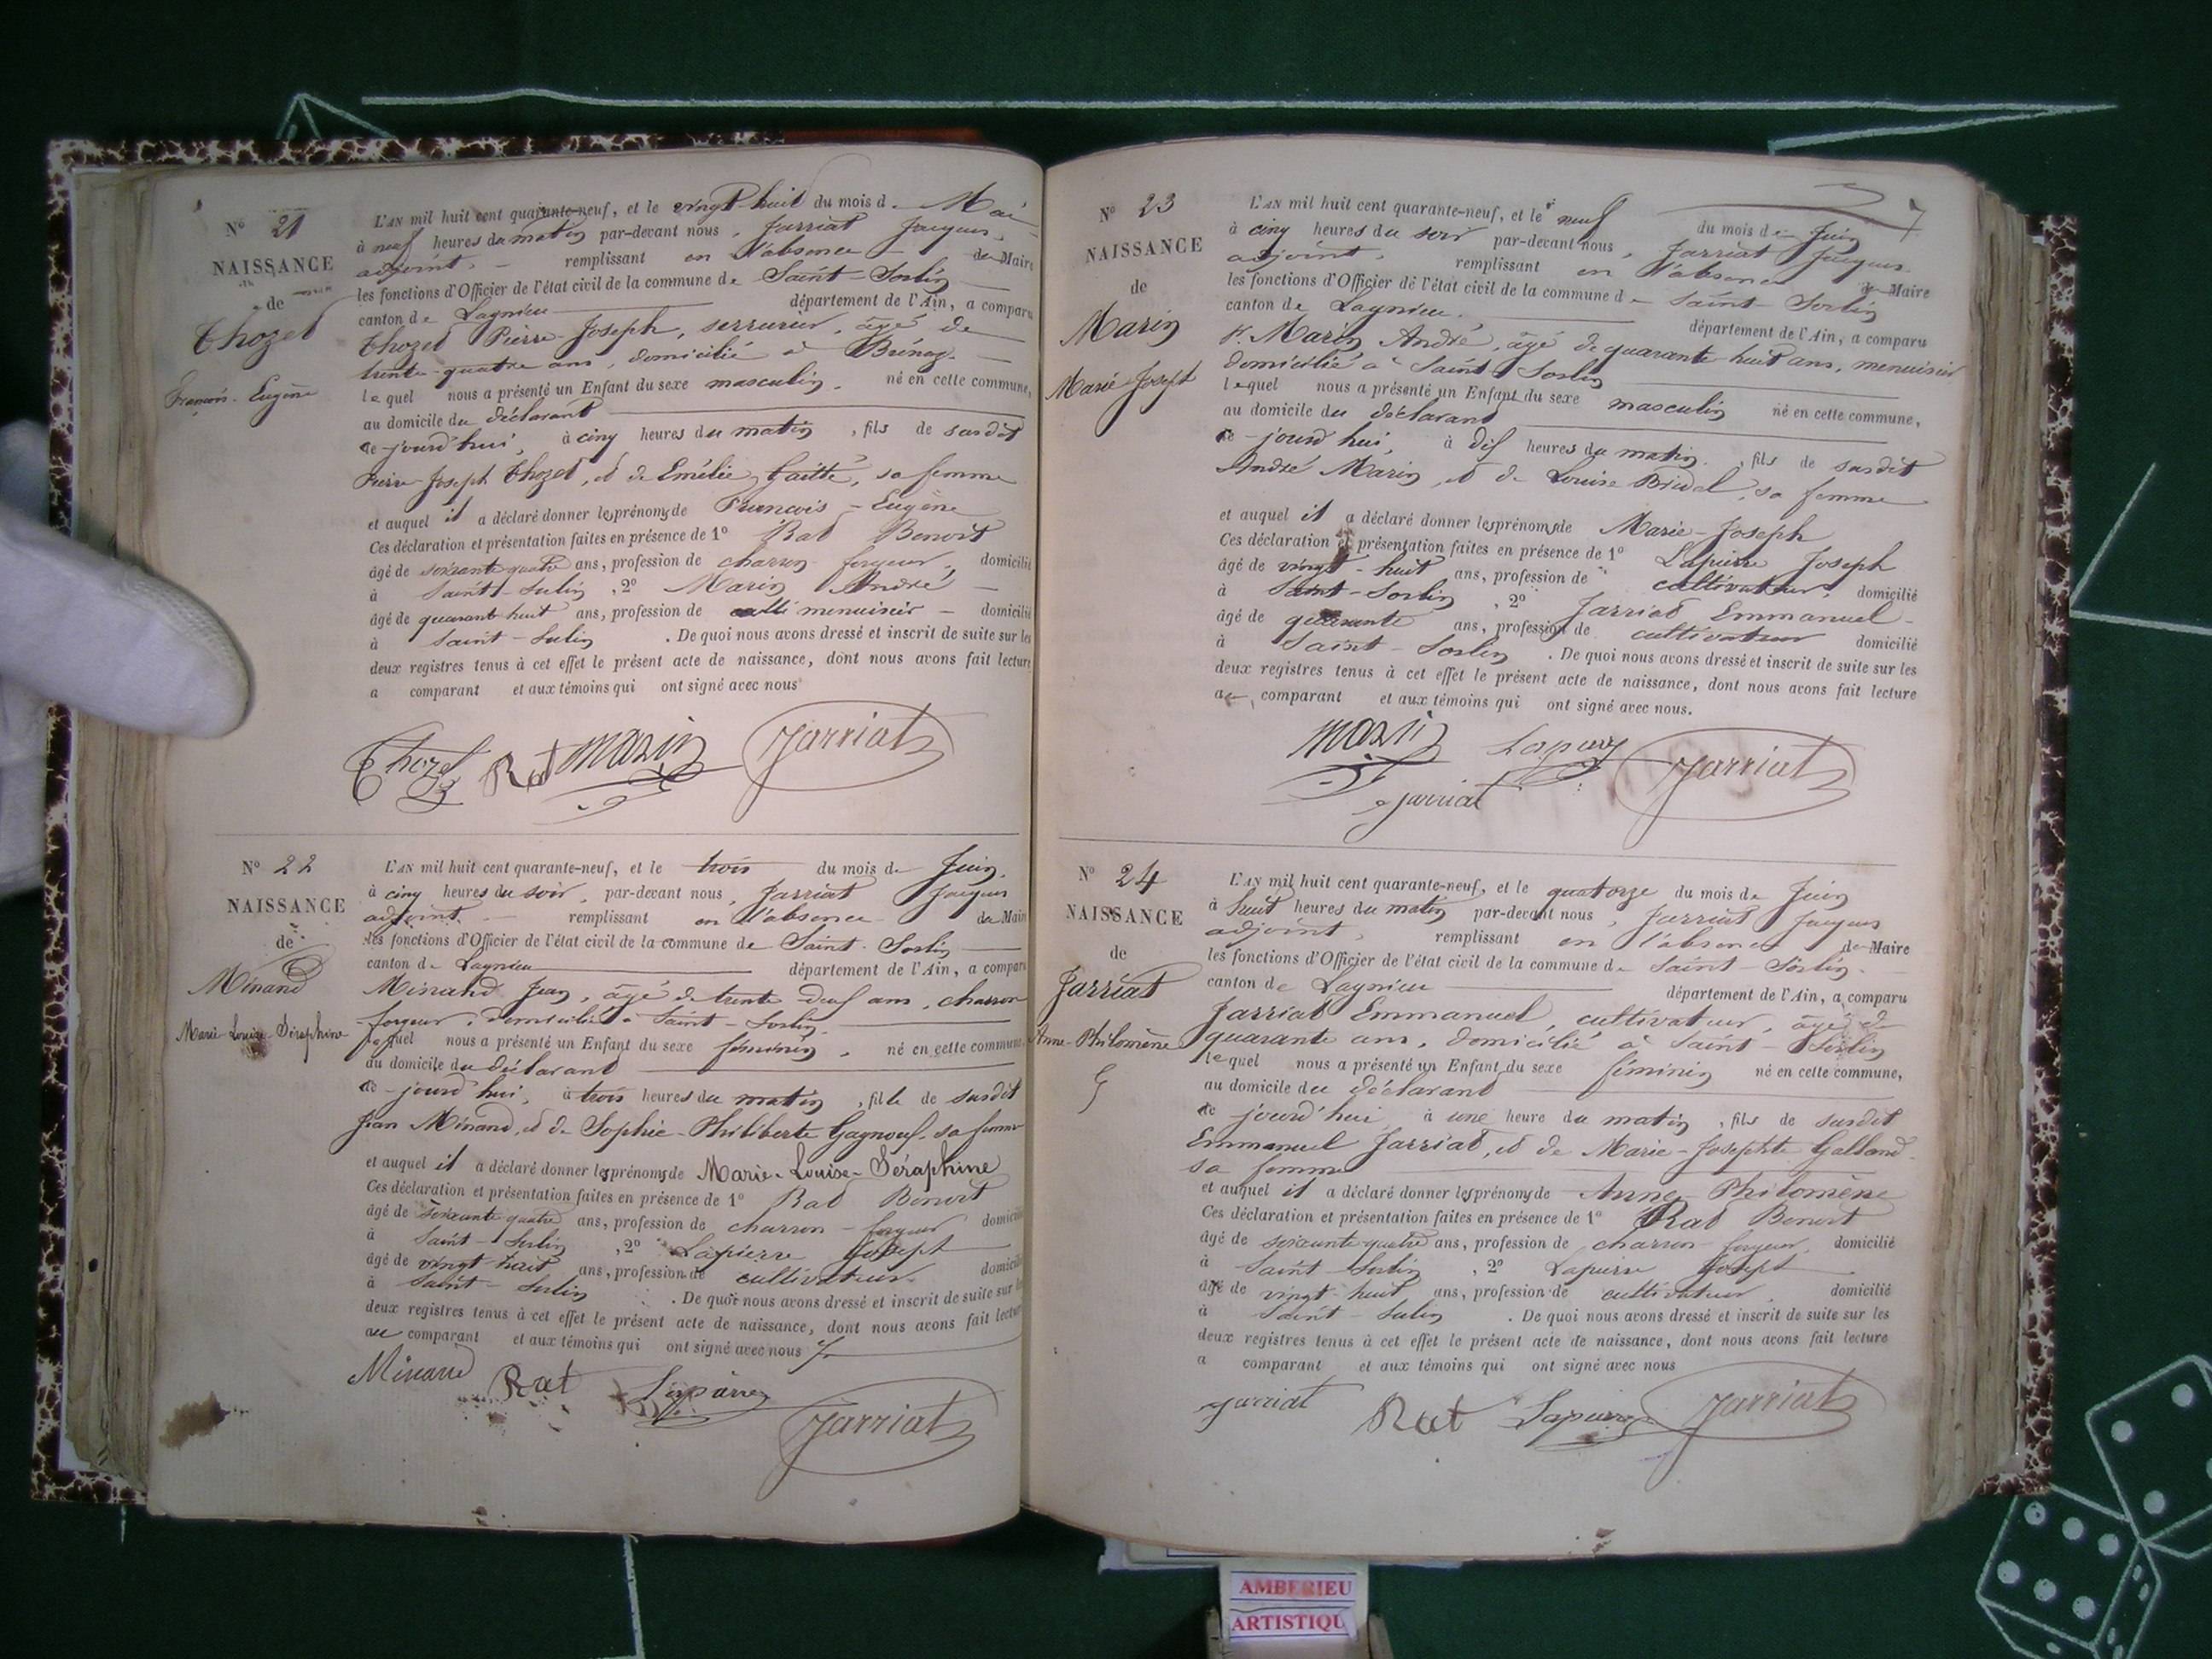 N° 21
NAISSANCE
de
Thozet
François-Eugène
L'AN mil huit cent quarante-neuf, et le vingt-huit du mois de Mai
à neuf heures du matin par-devant nous, Jarriat Jacques,
adjoint, remplissant en l'absence du Maire
les fonctions d'Officier de l'état civil de la commune de Saint-Sorlin
canton de Lagnieu département de l'Ain, a comparu
Thozet Pierre-Joseph, serrurier, âgé de
trente-quatre ans, domicilié à Brénaz
lequel nous a présenté un Enfant du sexe masculin, né en cette commune,
au domicile du déclarant
ce-jourd'hui, à cinq heures du matin, fils de susdit
Pierre-Joseph Thozet, et de Emélie Gaitte, sa femme
et auquel il a déclaré donner les prénoms de François-Eugène
Ces déclaration et présentation faites en présence de 1° Rat Benoit
âgé de soixante quatre ans, profession de charron forgeur, domicilié
à Saint-Sulin, 2° Marin André
âgé de quarant-huit ans, profession de menuisier domicilié
à Saint-Sulin. De quoi nous avons dressé et inscrit de suite sur les
deux registres tenus à cet effet le présent acte de naissance, dont nous avons fait lecture
a comparant et aux témoins qui ont signé avec nous
Thozet Rat Marin Jarriat
N° 22
NAISSANCE
de
Minand
Marie-Louise-Séraphine
L'AN mil huit cent quarante-neuf, et le trois du mois de Juin,
à cinq heures du soir, par-devant nous, Jarriat Jacques
adjoint, remplissant en l'absence du Maire
les fonctions d'Officier de l'état civil de la commune de Saint-Sorlin
canton de Lagnieu département de l'Ain, a comparu
Minand Jean, âgé de trente-deuf ans, charron
forgeur, domicilié à Saint-Sorlin
lequel nous a présenté un Enfant du sexe féminin, né en cette commune,
au domicile du déclarant
ce-jourd'hui, à trois heures du matin, fille de susdit
Jean Minand, et de Sophie-Philiberte Gagnouf, sa femme
et auquel il a déclaré donner les prénoms de Marie-Louise-Séraphine
Ces déclaration et présentation faites en présence de 1° Rat Benoit
âgé de soixante quatre ans, profession de charron-forgeur domicilié
à Saint-Sulin, 2° Lapierre Joseph
âgé de vingt huit ans, profession de cultivateur domicilié
à Saint-Sulin. De quoi nous avons dressé et inscrit de suite sur les
deux registres tenus à cet effet le présent acte de naissance, dont nous avons fait lecture
au comparant et aux témoins qui ont signé avec nous
Minand Rat Lapierre
Jarriat
7
N° 23
NAISSANCE
de
Marin
Marie-Joseph
L'AN mil huit cent quarante-neuf, et le neuf du mois de Juin
à cinq heures du soir par-devant nous, Jarriat Jacques
adjoint, remplissant en l'absence du Maire
les fonctions d'Officier de l'état civil de la commune de Saint-Sorlin
canton de Lagnieu. département de l'Ain, a comparu
Marin André, âgé de quarante-huit ans, menuisier
domicilié à Saint-Sorlin
lequel nous a présenté un Enfant du sexe masculin né en cette commune,
au domicile du déclarant
ce-jourd'hui, à dif heures du matin, fils de susdit
André Marin, et de Louise Bridel, sa femme
et auquel il a déclaré donner les prénoms de Marie-Joseph
Ces déclaration et présentation faites en présence de 1° Lapierre Joseph
âgé de vingt-huit ans, profession de cultivateur, domicilié
à Saint-Sorlin, 2° Jarriat Emmanuel
âgé de quarante ans, profession de cultivateur domicilié
à Saint-Sorlin. De quoi nous avons dressé et inscrit de suite sur les
deux registres tenus à cet effet le présent acte de naissance, dont nous avons fait lecture
au comparant et aux témoins qui ont signé avec nous.
Marin Lapierre Jarriat
jarriat
N° 24
NAISSANCE
de
Jarriat
Anne-Philomène
L'AN mil huit cent quarante-neuf, et le quatorze du mois de Juin
à huit heures du matin par-devant nous, Jarriat Jacques
adjoint, remplissant en l'absence du Maire
les fonctions d'Officier de l'état civil de la commune de Saint-Sorlin
canton de Lagnieu département de l'Ain, a comparu
Jarriat Emmanuel, cultivateur, âgé de
quarante ans, domicilié à Saint-Sorlin
lequel nous a présenté un Enfant du sexe féminin né en cette commune,
au domicile du déclarant
ce jourd'hui à une heure du matin, fils de susdit
Emmanuel Jarriat, et de Marie-Josephte Galland
sa femme
et auquel il a déclaré donner les prénoms de Anne-Philomène
Ces déclaration et présentation faites en présence de 1° Rat Benoit
âgé de soixante quatre ans, profession de charron-forgeur, domicilié
à Saint-Sorlin, 2° Lapierre Joseph
âgé de vingt-huit ans, profession de cultivateur, domicilié
à Saint-Sulin. De quoi nous avons dressé et inscrit de suite sur les
deux registres tenus à cet effet le présent acte de naissance, dont nous avons fait lecture
a comparant et aux témoins qui ont signé avec nous
jarriat Rat Lapierre Jarriat
AMBERIEU
ARTISTIQU